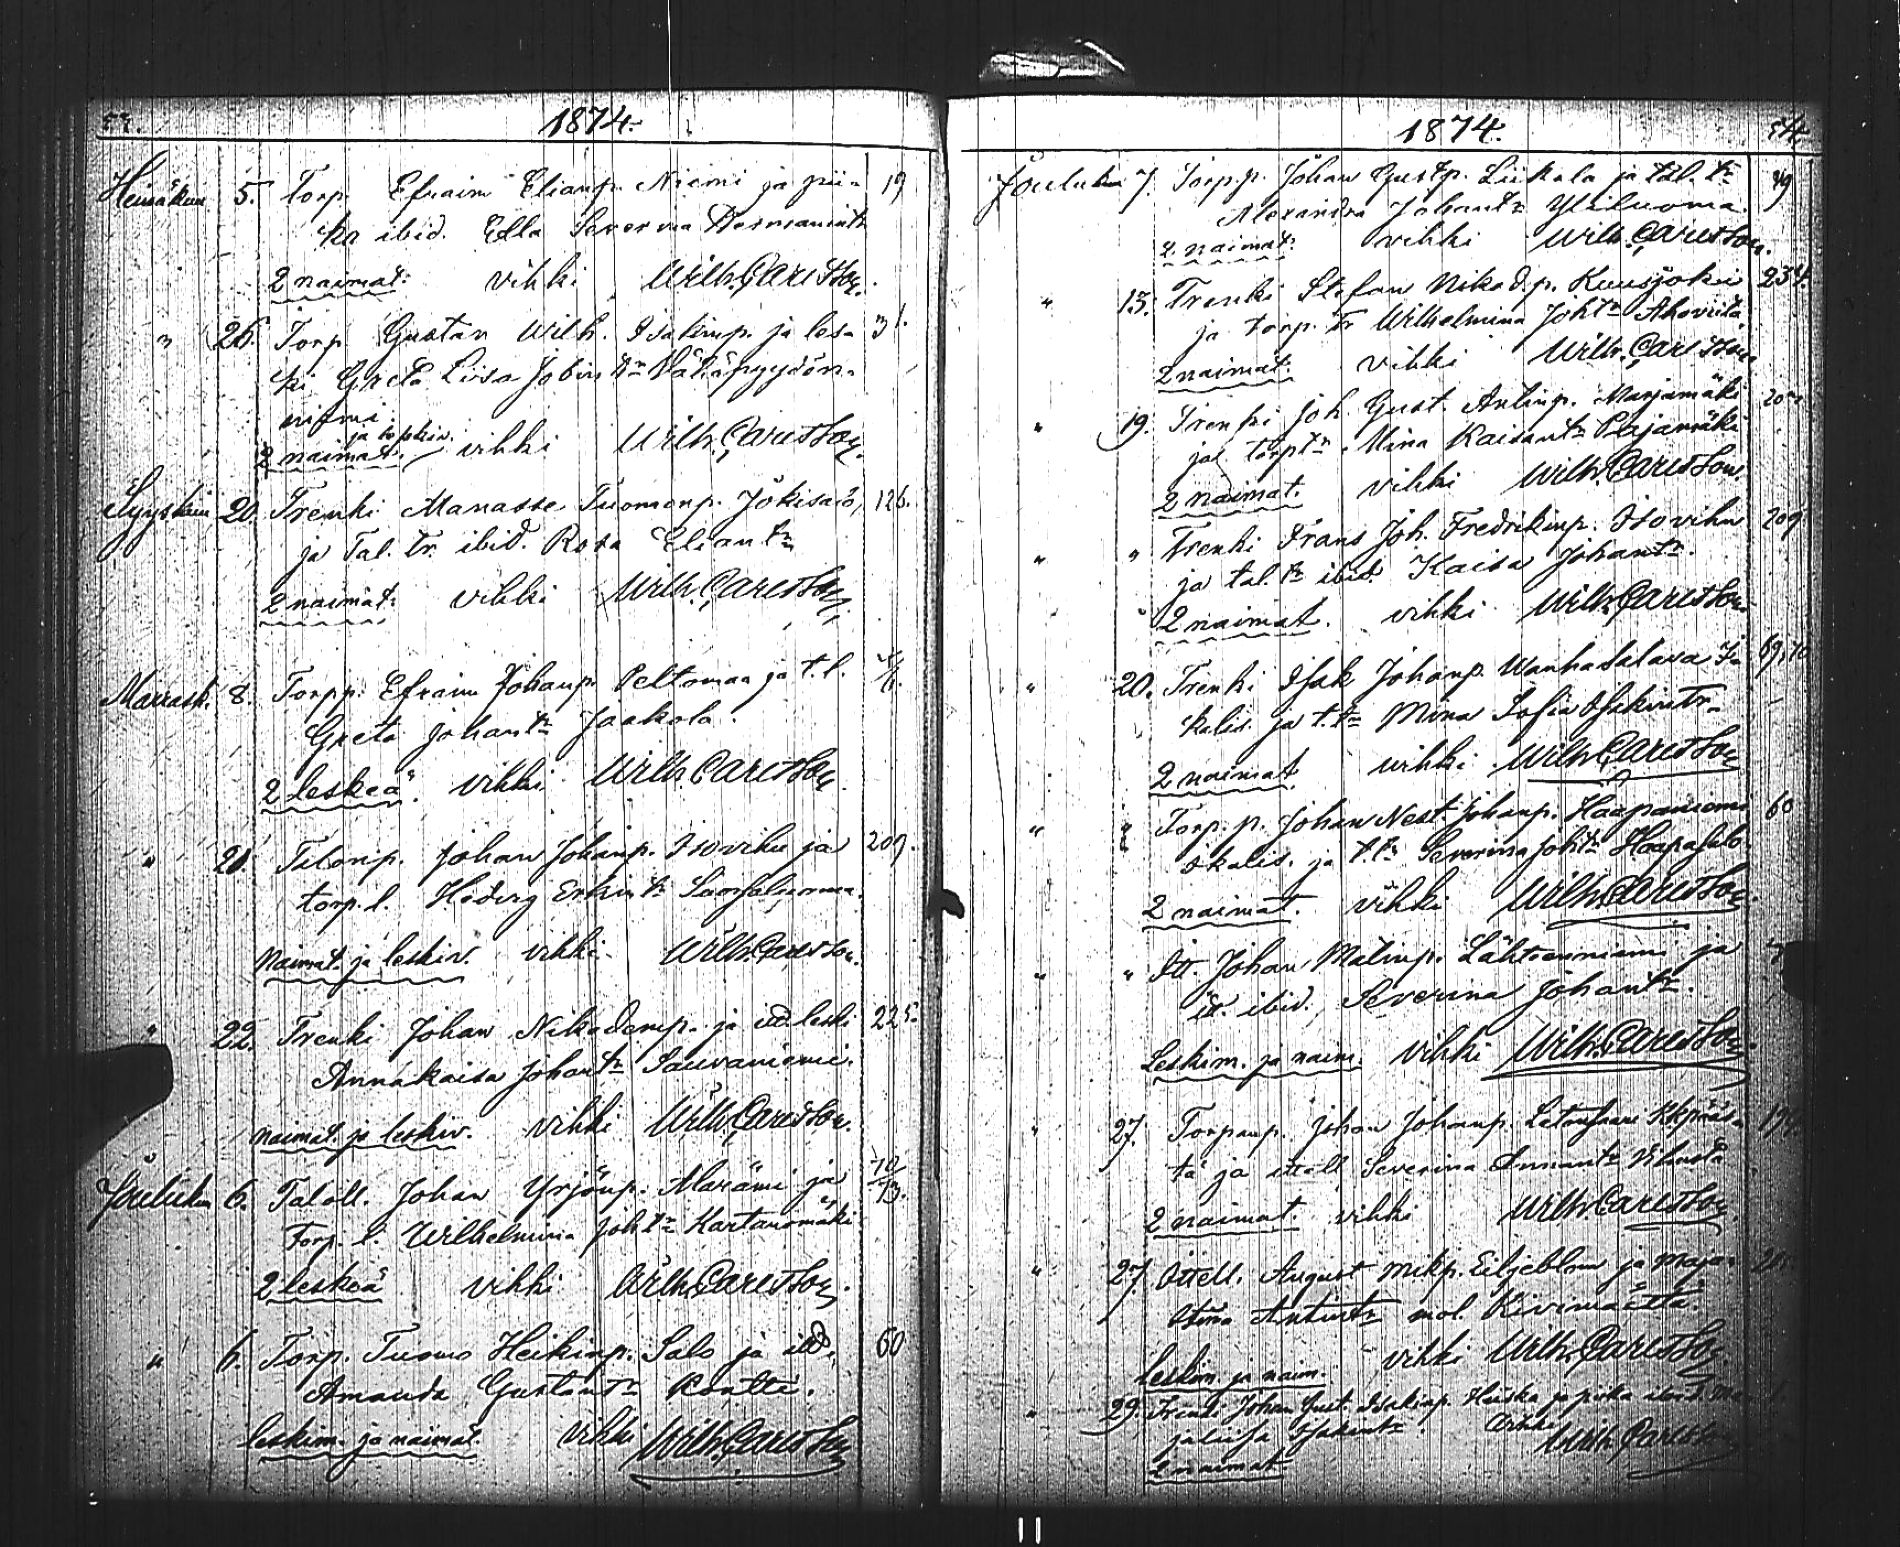 53.
1874.
Heinäkuu 5. Torp. Efraim Elianp. Niemi ja pii- 19
ka ibid. Ella Severina Hermanintr
2 naimat. vihki Wilh. Carlsson.
" 26. Torp. Gustav Wilh. Isakinp. ja les- 31.
ki Greta Liisa Jobintr
niemi
ja leskiv.
2 naimat. vihki Wilh. Carlsson.
Syyskuu 20. Trenki Manasse Tuomonp. Jokisalo, 126.
ja Tal. tr. ibid. Rosa Eliantr
2 naimat. vihki Wilh. Carlsson.
Marrask. 8. Torpp. Efraim Johanp. Peltomaa ja t.l.
Greta Johantr Jaakola.
2 leskeä. vihki Wilh. Carlsson.
" 20. Talonp. Johan Johanp. Isovihu ja 209.
torp. l. Hedvig Erkintr
Naimat. ja leskiv. vihki Wilh. Carlsson.
" 22. Trenki Johan Nikodemp. ja itl. leski 225.
Annakaisa Johantr Sauvaniemi.
naimat. ja leskiv. vihki Wilh. Carlsson.
Jouluku 6. Taloll. Johan Yrjönp. Marämi ja
Torp. l. Wilhelmina Johtr Kartanomäki
2 leskeä vihki Wilh. Carlsson.
" 6. Torp. Tuomo Heikinp. Salo ja itl. 60
Amanda Gustantr Kontti.
leskim. ja naimat. vihki Wilh. Carlsson
1874.
54.
Jouluku 7. Torp.p. Johan Gustp. Liikala ja tal. tr 49
Alexandra Johantr Yliluoma.
2 naimat. vihki Wilh. Carlsson.
" 13. Trenki Stefan Nikod.p. Kuusjoki 234.
ja torp. tr Wilhelmina Johtr Ahoviita.
2 naimat. vihki Wilh. Carlsson
" 19. Trenki Joh. Gust. Antinp. Marjamäki
ja torptr Mina Kaisantr Pajamäki
2 naimat. vihki Wilh. Carlsson.
" " Trenki Frans Joh. Fredrikinp. Isovihu 209
ja tal. tr ibid. Kaisa Johantr.
2 naimat. vihki Wilh. Carlsson
" 20. Trenki Isak Johanp. Wanhasalava I- 69, 70
kalis. ja t.tr Mina Sofia Isakintr.
2 naimat. vihki Wilh. Carlsson
" " Torp. p. Johan Nest. Johanp. Haapaniemi 60
Ikalis. ja t.tr Severina Johtr Haapasalo
2 naimat. vihki Wilh. Carlsson.
" " Itl. Johan Matinp. Lähteenniemi ja
it. ibid. Severina Johantr.
Leskim. ja naim. vihki Wilh. Carlsson.
" 27. Torpanp. Johan Johanp.
tä ja itell. Severina Annantr
2 naimat. vihki Wilh. Carlsson
" 27. Itell. August Mikp. Liljeblom ja Maja
Stina Antintr mol. Kivimäeltä.
leskim. ja naim. vihki Wilh. Carlsson
" 29. Trenki Johan Gust. Isakinp. Heiska ja piika ibid. Ma-
jaliisa Isakintr. vihki Wilh. Carlsson
2 naimat
11